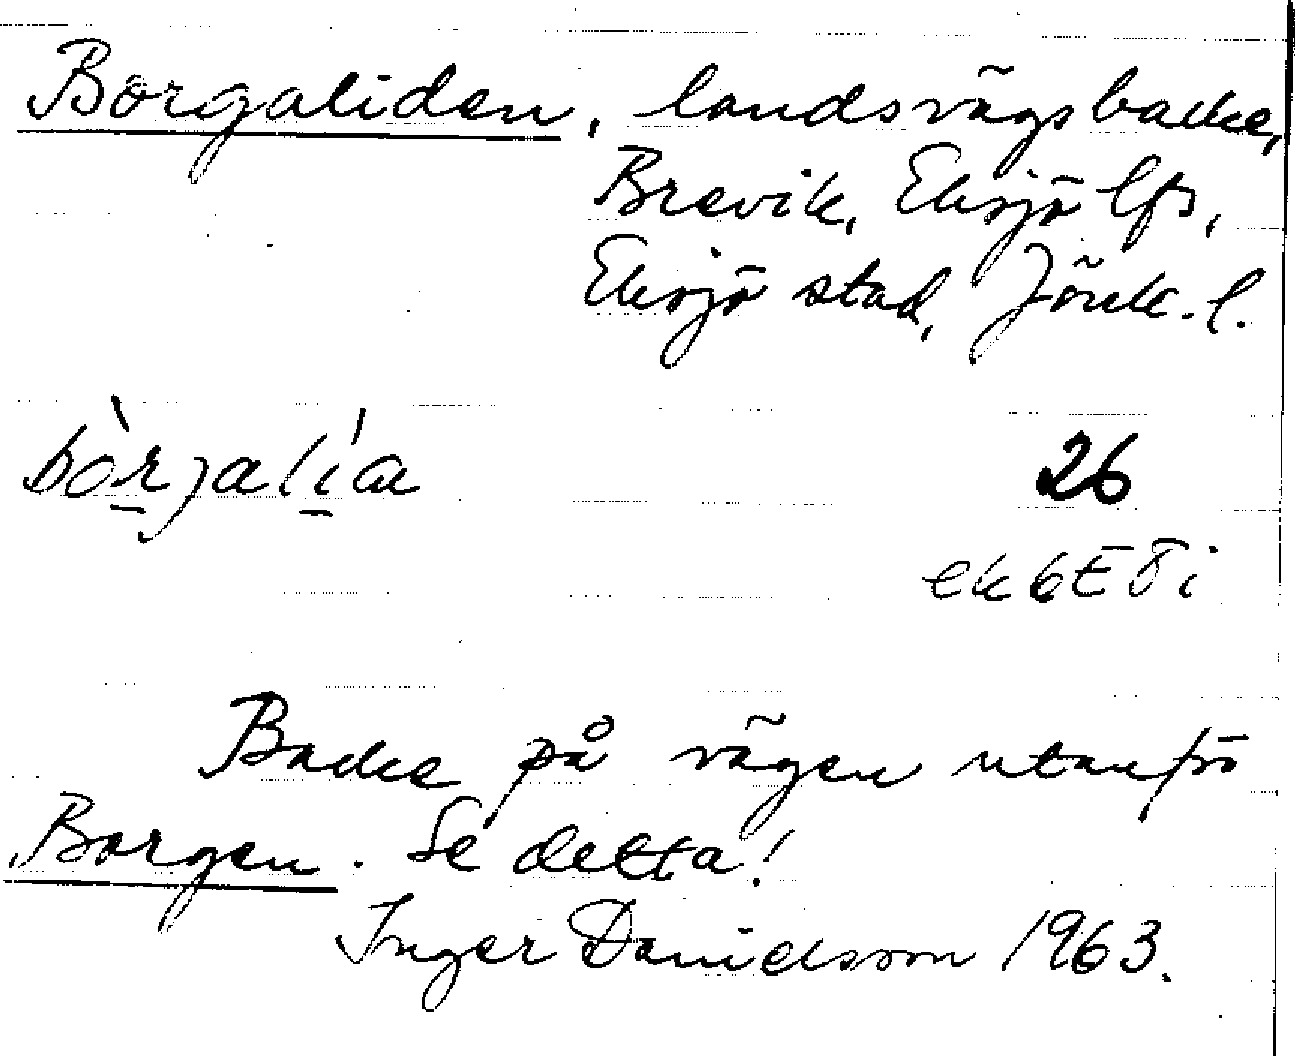 Borgaliden, landsvägsbacke,
Brevik, Eksjö lfs,
Eksjö stad, Jönk. l.
bòrjalía
26
ek 6E Ö i
Backe på vägen utanför
Borgen. Se detta!
Inger Danielsson 1963.